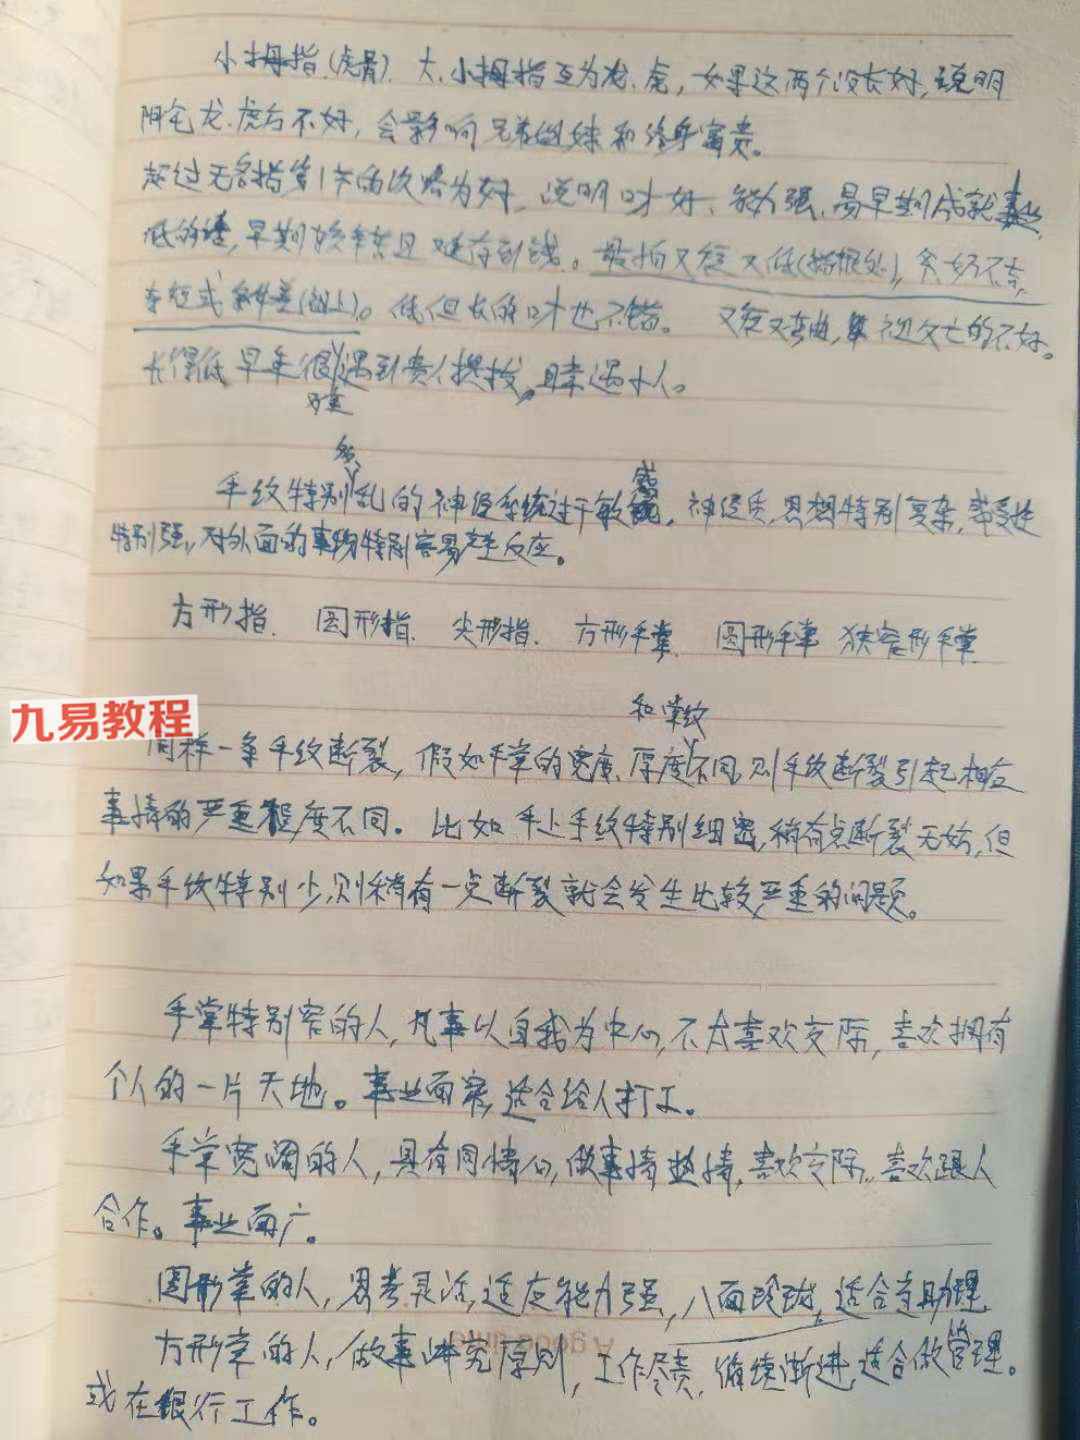 小拇指(虎骨). 大、小拇指互为龙、虎, 如果这两个没长好, 说明
阴宅龙、虎方不好, 会影响兄弟姐妹和终身富贵。
超过无名指第1节的次路为好, 说明口才好、能力强、易早期成就事业,
低的矮, 早期较辛苦且难存到钱。最怕又短又低(指根处),
低但长的口才也不错。 又短又弯曲, 的不好。
长得低早年很难遇到贵人提拔, 且幸遇小人。
手纹特别多乱的神经系统过于敏感, 神经质, 思想特别复杂, 感受性
特别强, 对外面的事物特别容易产生反应。
方形指. 圆形指. 尖形指. 方形手掌. 圆形手掌 狭窄形手掌
九易教程
同样一条手纹断裂, 假如手掌的宽度、厚度和掌纹不同, 则手纹断裂引起相应
事情的严重程度不同。比如手上手纹特别细密, 稍有点断裂无妨, 但
如果手纹特别少, 则稍有一点断裂就会发生比较严重的问题。
手掌特别窄的人, 凡事以自我为中心, 不太喜欢交际, 喜欢拥有
个人的一片天地。事业面窄, 适合给人打工。
手掌宽阔的人, 具有同情心, 做事情热情, 喜欢交际, 喜欢跟人
合作。事业面广。
圆形掌的人, 思考灵活, 适应能力强, 八面玲珑, 适合当助理
方形掌的人, 做事讲究原则, 工作尽责, 循序渐进, 适合做管理。
或在银行工作。